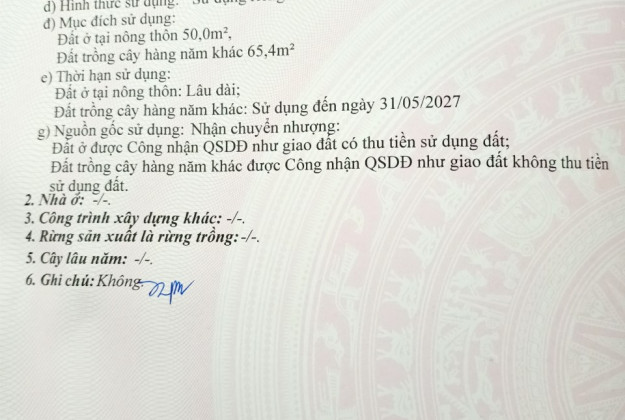 d) Hình thức sử dụng:
đ) Mục đích sử dụng:
Đất ở tại nông thôn 50,0m²,
Đất trồng cây hàng năm khác 65,4m²
e) Thời hạn sử dụng:
Đất ở tại nông thôn: Lâu dài;
Đất trồng cây hàng năm khác: Sử dụng đến ngày 31/05/2027
g) Nguồn gốc sử dụng: Nhận chuyển nhượng:
Đất ở được Công nhận QSDĐ như giao đất có thu tiền sử dụng đất;
Đất trồng cây hàng năm khác được Công nhận QSDĐ như giao đất không thu tiền
sử dụng đất.
2. Nhà ở: -/-.
3. Công trình xây dựng khác: -/-.
4. Rừng sản xuất là rừng trồng: -/-.
5. Cây lâu năm: -/-.
6. Ghi chú: Không.